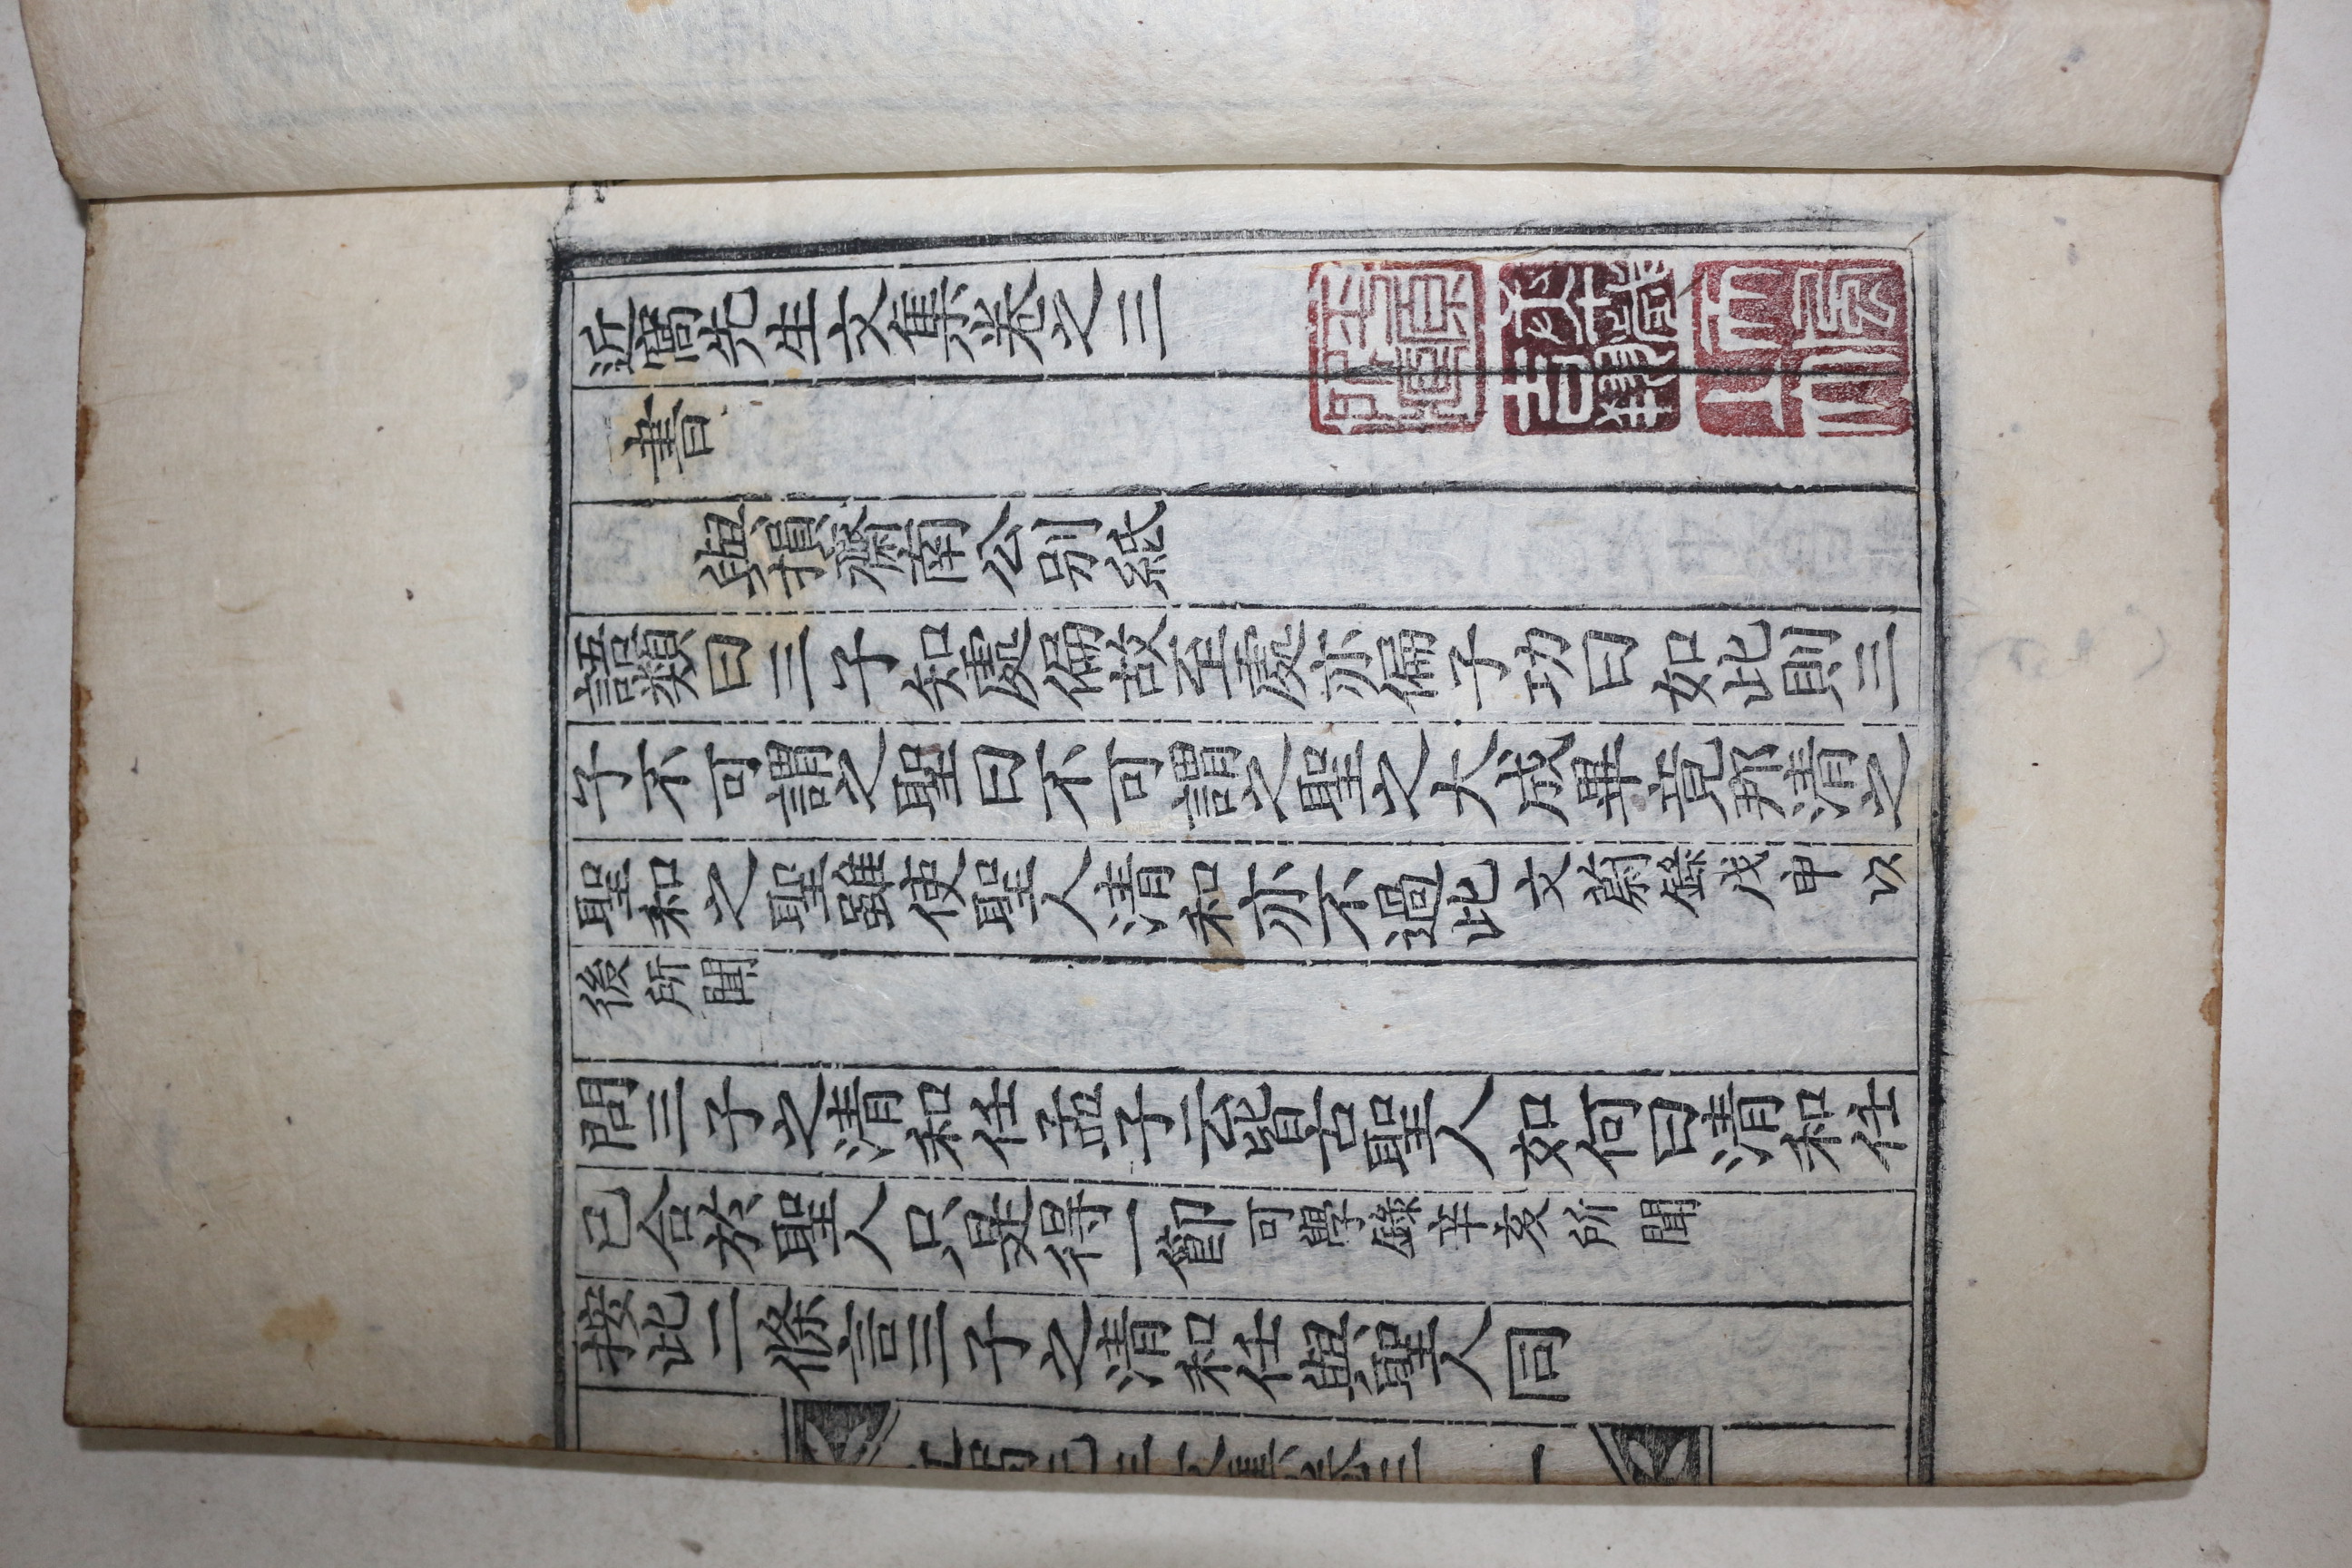 近窩先生文集卷之三
書
與損齋南公別紙
語類曰三子知處偏故至處亦偏子功曰如此則三
子不可謂之聖曰不可謂之聖之大成畢竟那清之
聖和之聖雖使聖人清和亦不過此文蔚錄戊申以
後所聞
問三子之清和任孟子云皆古聖人如何曰清和任
已合於聖人只是得一節可學錄辛亥所聞
按此二條言三子之清和任與聖人同